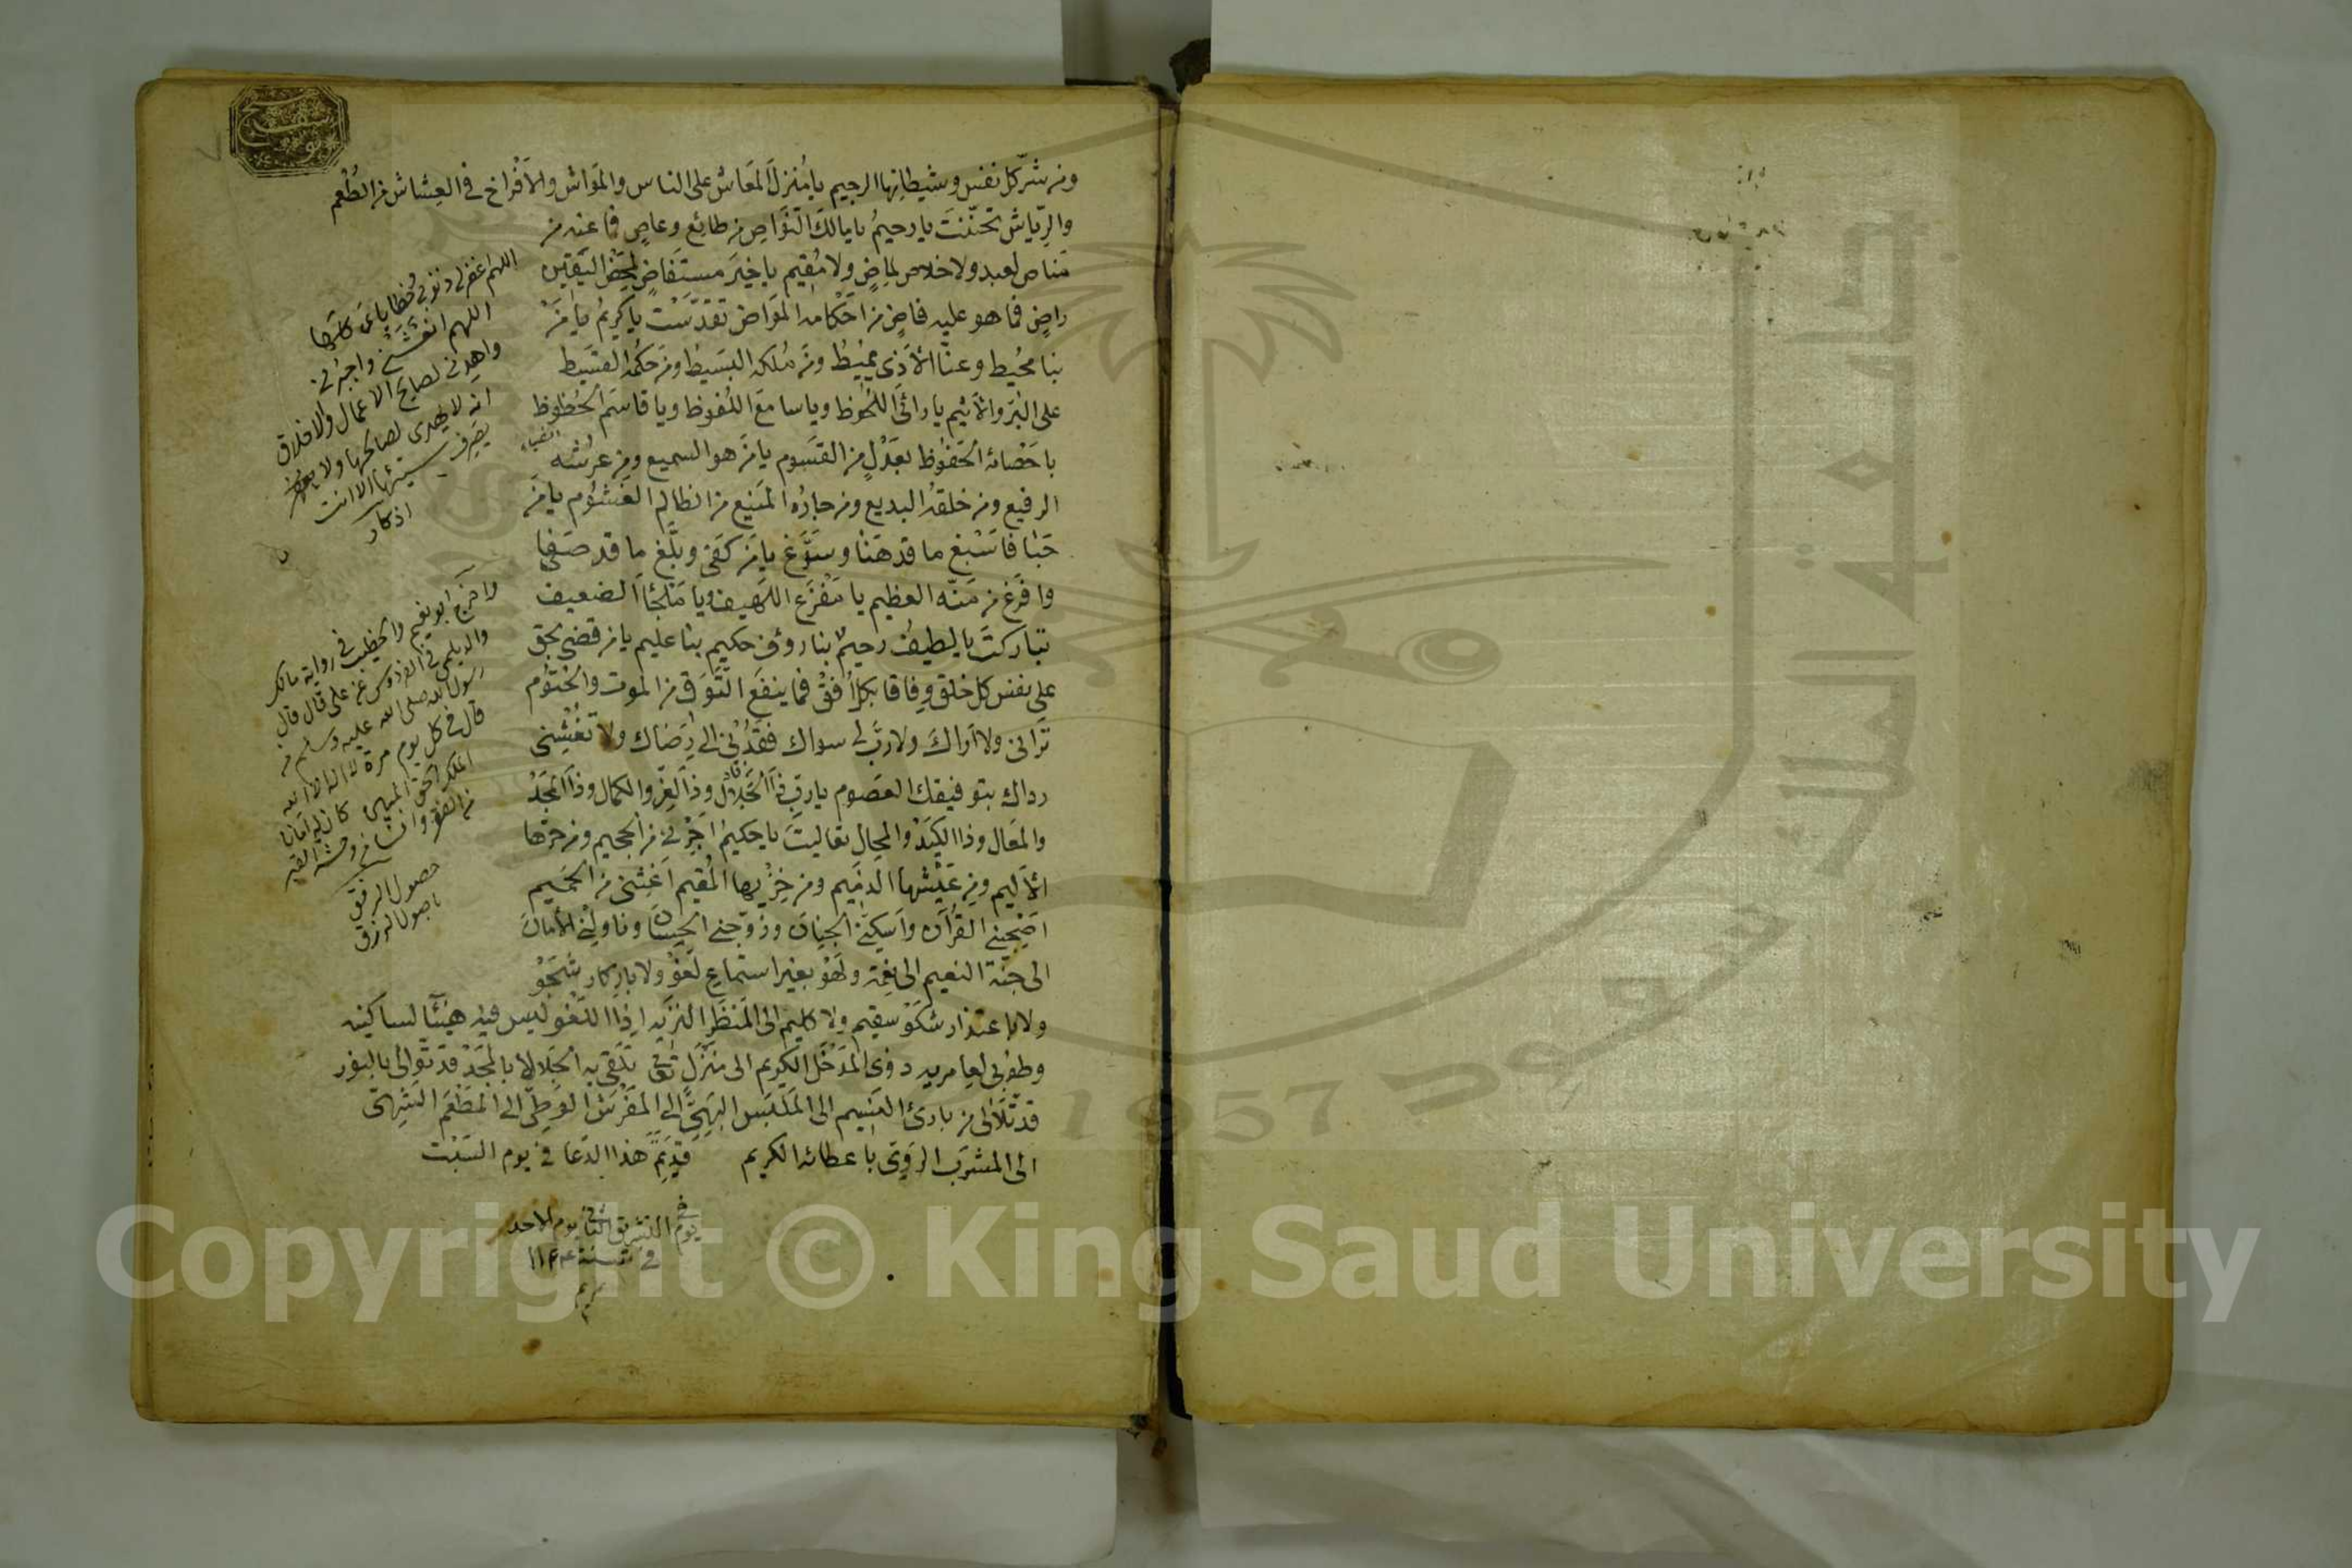 ومن شرّ كل نفس وشيطانها الرجيم يا مُنزلَ المَعَاش على الناس والمَوَاش والأفْراخ في العِشاش من الطُعم
والرِّياش تحنّنتَ يا رحيمُ يا مالكَ النَّوَاصِ من طائِع وعاصٍ فما عنه من
مَناص لعبد ولا خلاص لماضٍ ولا مُقيم يا خيرَ مستَفَاضٍ لمحض اليَقين
راضٍ فما هو عليه قاضٍ من احكامه المَوَاض تقدّسْت يا كريمُ يا مَنْ
بنا محُيط وعنّا الأذى يمُيط ومَن مُلكه البَسيط ومَن حكمُه القسيط
على البَرّ والأثيم يا رائيَ اللُحوظ ويا سامعَ اللُفوظ ويا قاسمَ الحُظوظ
باحصائه الحَفوظ بعَدْلٍ من القسُوم يا مَن هو السميع ومن عرشُه
الرفيع ومن خلقُه البديع ومن جارُه المَنيع من الظالم الغَشوُم يا مَن
حَبَا فاَسْبغ ما قد هَنا وسَوَّغ يا مَن كَفى وبلّغ ما قد صَفى
وافرَغ من مَنّه العظيم يا مَفْزَع اللَهيف ويا مَلجَأَ الضعيف
تباركتَ يا لطيف رحيمٌ بنا روؤف حكيم بنا عليم يا من قضى بحق
على نفس كل خلق وفاقا بكل أفق فما ينفَع التَّوَق من الموت والحُتوُم
تَراني ولا اَراكَ ولا ربَّ لى سواك فقُدْني الى رضاك ولا تُغشِني
رداك بتوفيقك العَصوم يا ربّ ذا الجَلال وذا العِزّ والكمال وذا المَجدْ
والمَعَال وذا الكَيدْ والمِحال تعاليتَ يا حكيمُ اَجِرْني من الجحيم ومن حَرّها
الأليم ومن عَيْشها الذميم ومن خزْيها المُقيم اغِثني من الحَميم
اصْحِبْني القُرآن واَسكِنّي الجِنان وزوّجني الحِسان وناولْني الأمان
الى جنّة النعيم الى نعمَة ولهَوْ بغير استماع لَغوْ ولا بادّكار شَجْو
ولا باعتذار شكَوْ سقيم ولا كليم الى المَنظَر النَزيه اِذا اللَغو ليس فيه هنيئًا لساكنيه
وطوْبى لعامريه ذوى المَدْخَل الكريم الى منْزل تعالى تلقّى به الجَلالا بالمَجدْ قد توالى بالنور
قد تلَالا من بارئ النسيم الى المَلبَس البَهِيّ الى المَفْرَش الوَطِيّ الى المَطْعَم الشِهيّ
الى المشرَب الرَوِيّ باعطائه الكريم قد تمّ هذا الدعا في يوم السَبْت
في
يوم التشريق الثاني يوم الاحد
في سنة
اللهم اغفر لى ذنوبي وخطاياى كلّها
اللهم انعشني واجبُرني
واهدني لصالح الاعمال والاخلاق
انه لا يهدى لصالحها ولا
يصَرف سيّئها الا انت
اذكار
واخرج ابو نعيم والخطيب في رواية مالك
والديلمي في الفردوس عن علي قال قال
رسول الله صلى الله عليه وسلم من
قال في كل يوم مرة لا اله الا الله
الملك الحق المبين كان له امانا
من الفقر وانسا من وحشة القبر